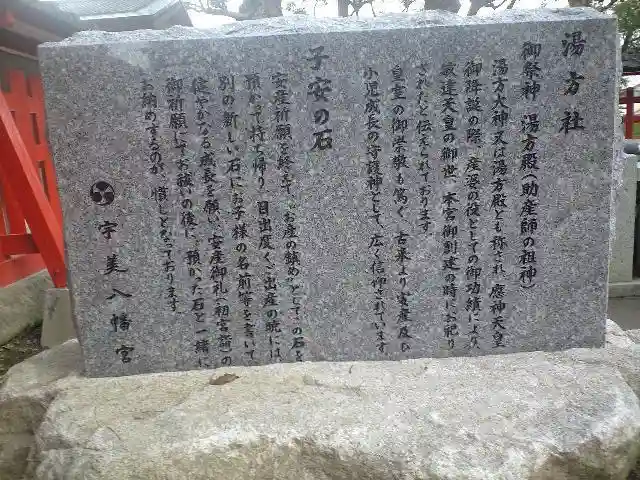 湯方社
御祭神 湯方殿(助産師の祖神)
湯方大神又は湯方殿とも称され、應神天皇
御降誕の際、産婆の役としての御功績により、
敏達天皇の御世、本宮御創建の時にお祀り
されたと伝えられております。
皇室の御崇敬も篤く、古来より安産及び
小児成長の守護神として、広く信仰されています。
子安の石
安産祈願を終えて、お産の鎮めとしてこの石を
預かって持ち帰り、目出度くご出産の暁には、
別の新しい石にお子様の名前等を書いて、
健やかなる成長を願い、安産御礼(初宮詣)の
御祈願にてお祓いの後に、預かった石と一緒に
お納めするのが、慣しとなっております。
宇美八幡宮